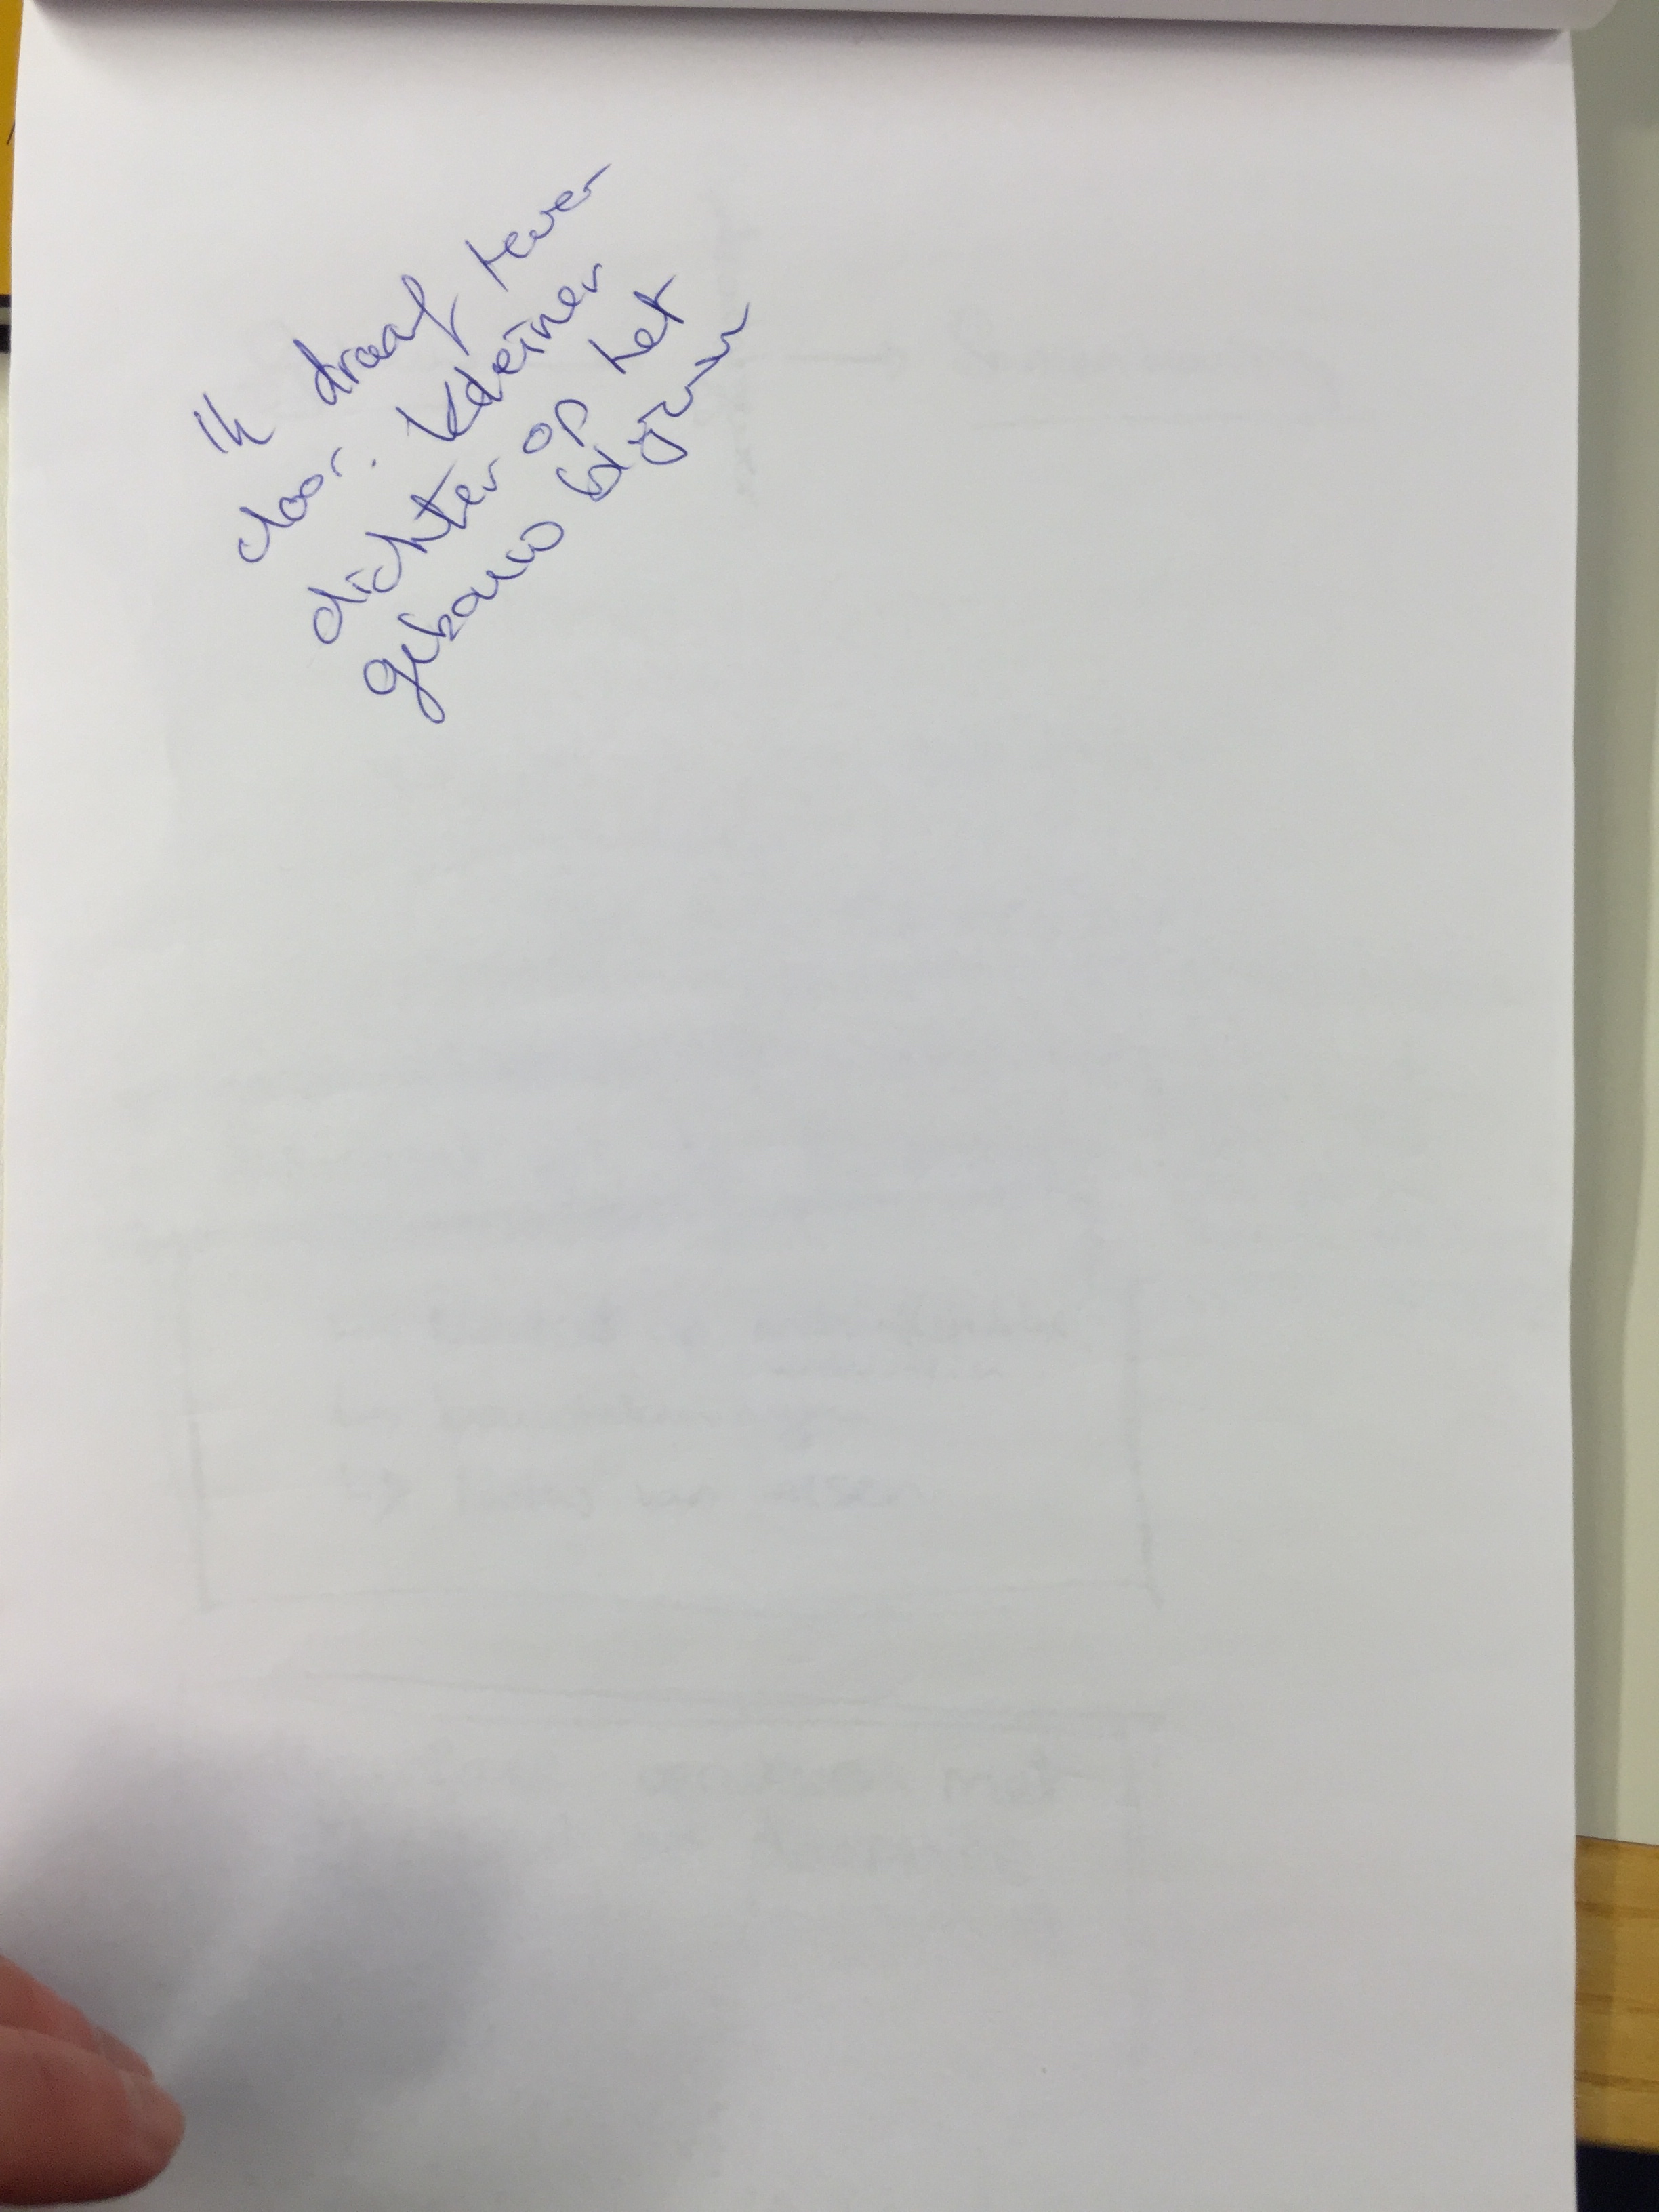 Ik draaf tever
door. Kleiner
dichter op het
gebouw blijven